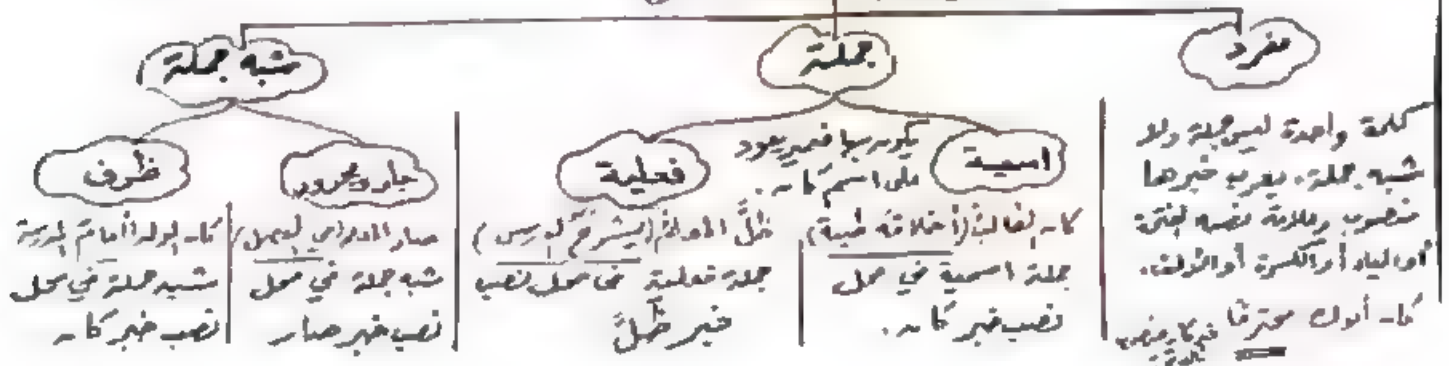 مفرد
جملة
شبه جملة
كلمة واحدة ليس جملة ولا
شبه جملة، يعرب خبرها
منصوب وعلامة نصبه الفتحة
أو الياء أو الكسرة أو الألف.
كان أبوك محترمًا
اسمية
يكون بها ضمير يعود
على اسم كان.
كان الطالبُ (أخلاقه طيبة)
جملة اسمية في محل
نصب خبر كان.
فعلية
ظلَّ المعلمُ (يشرحُ الدرس)
جملة فعلية في محل نصب
خبر ظلَّ
جار ومجرور
صار المعلم في الفصل
شبه جملة في محل
نصب خبر صار
ظرف
كان الولد أمامَ المدرسة
شبه جملة في محل
نصب خبر كان